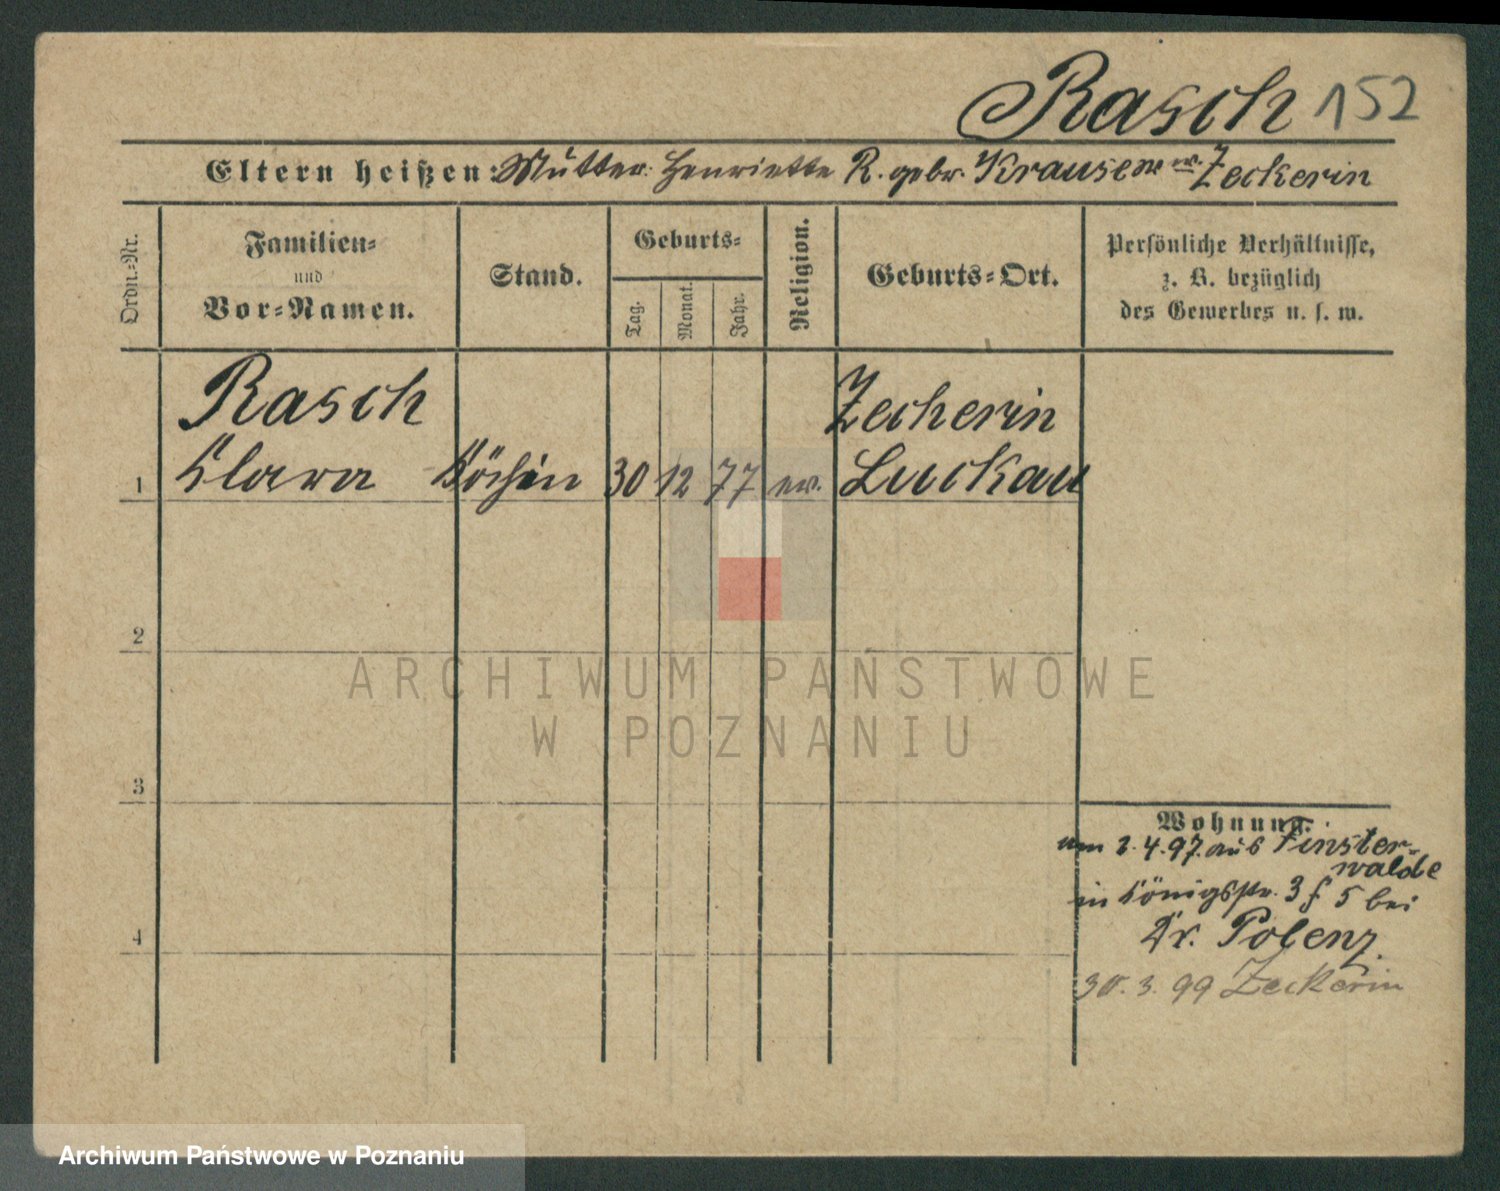 Rasch 152
Eltern heißen: Mutter: Henriette R. gebr. Krause ev. Zeckerin
Ordn.-Nr.
Familien-
und
Vor-Namen.
Stand.
Geburts-
Tag.
Monat.
Jahr.
Religion.
Geburts-Ort.
Persönliche Verhältnisse,
z. B. bezüglich
des Gewerbes u. s. w.
Rasch Zecherin
1 Clara Köchin 30 12 77 ev. Luckau
2
3
4
Wohnung.
am 2.4.97. aus Finster-
walde
in Königsstr. 3 f 5 bei
Dr. Polenz
30.3.99 Zeckerin
ARCHIWUM PAŃSTWOWE
W POZNANIU
Archiwum Państwowe w Poznaniu